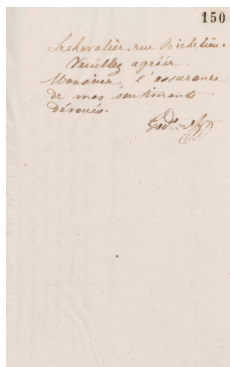 150
Lechevalier, rue Richelieu.
Veuillez agréer,
Monsieur, l'assurance
de mes sentiments
dévoués.